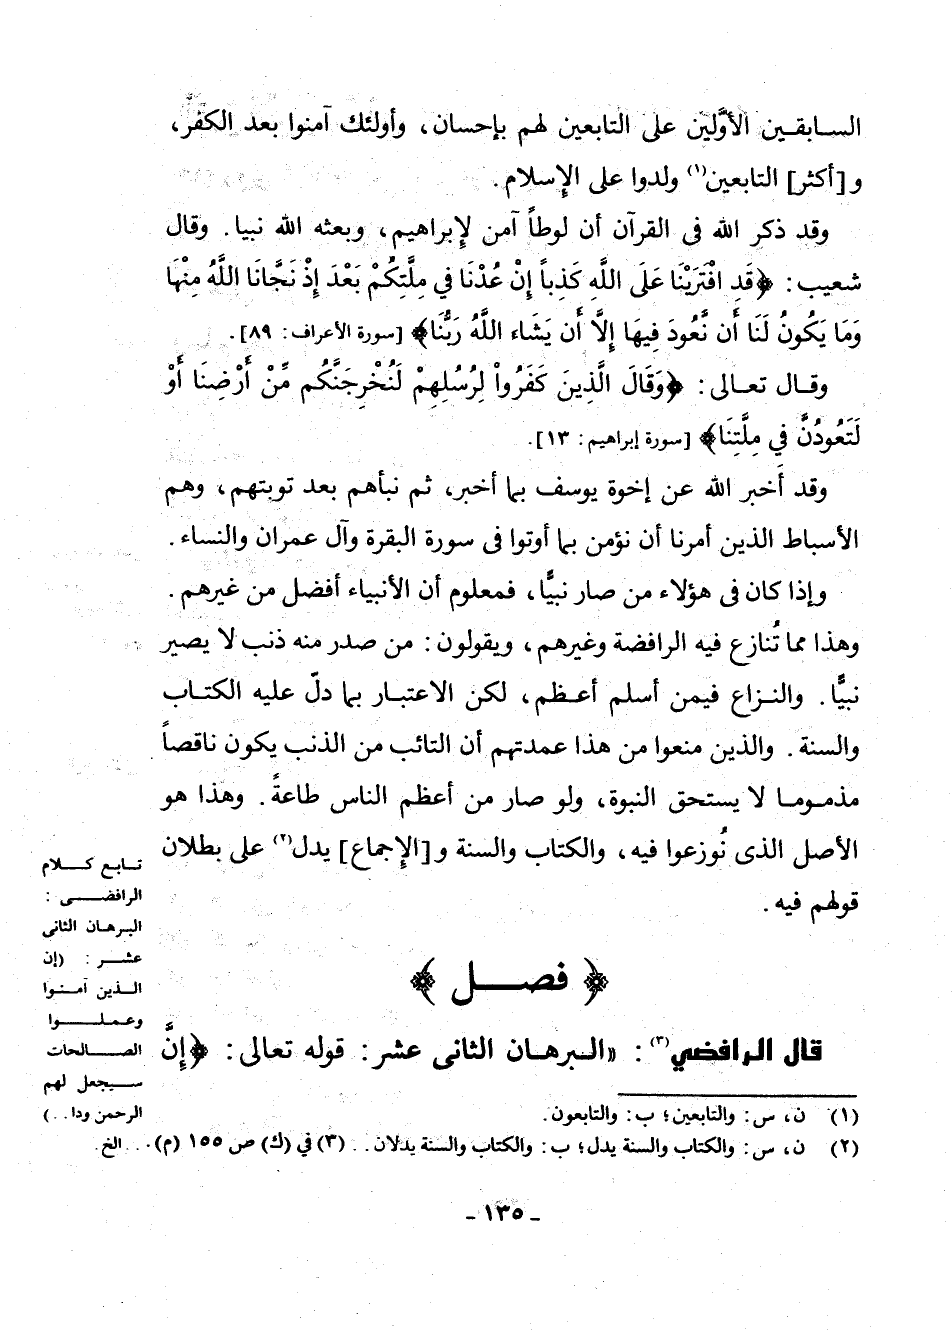 السابقين الأوَّلين على التابعين لهم بإحسان، وأولئك آمنوا بعد الكفر،
و[أكثر] التابعين(١) ولدوا على الإسلام.
وقد ذكر الله فى القرآن أن لوطاً آمن لإبراهيم، وبعثه الله نبيا. وقال
شعيب: ﴿قَدِ افْتَرَيْنَا عَلَى اللَّهِ كَذِباً إِنْ عُدْنَا فِي مِلَّتِكُمْ بَعْدَ إِذْ نَجَّانَا اللَّهُ مِنْهَا
وَمَا يَكُونُ لَنَا أَن نَّعُودَ فِيهَا إِلَّا أَن يَشَاء اللَّهُ رَبُّنَا﴾ [سورة الأعراف: ٨٩].
وقال تعالى: ﴿وَقَالَ الَّذِينَ كَفَرُواْ لِرُسُلِهِمْ لَنُخْرِجَنَّكُم مِّنْ أَرْضِنَا أَوْ
لَتَعُودُنَّ فِي مِلَّتِنَا﴾ [سورة إبراهيم: ١٣].
وقد أَخبر الله عن إخوة يوسف بما أخبر، ثم نبأهم بعد توبتهم، وهم
الأسباط الذين أمرنا أن نؤمن بما أوتوا فى سورة البقرة وآل عمران والنساء.
وإذا كان فى هؤلاء من صار نبيًّا، فمعلوم أن الأنبياء أفضل من غيرهم.
وهذا مما تُنازع فيه الرافضة وغيرهم، ويقولون: من صدر منه ذنب لا يصير
نبيًّا. والنزاع فيمن أسلم أعظم، لكن الاعتبار بما دلّ عليه الكتاب
والسنة. والذين منعوا من هذا عمدتهم أن التائب من الذنب يكون ناقصاً
مذموما لا يستحق النبوة، ولو صار من أعظم الناس طاعةً. وهذا هو
الأصل الذى نُوزعوا فيه، والكتاب والسنة و[الإجماع] يدل(٢) على بطلان
قولهم فيه.
﴿ فصل ﴾
قال الرافضي(٣): «البرهان الثانى عشر: قوله تعالى: ﴿إِنَّ
تابع كلام
الرافضى:
البرهان الثانى
عشر: (إن
الذين آمنوا
وعملوا
الصالحات
سيجعل لهم
الرحمن ودا..)
(١) ن، س: والتابعين؛ ب: والتابعون.
(٢) ن، س: والكتاب والسنة يدل؛ ب: والكتاب والسنة يدلان.. (٣) في (ك) ص ١٥٥ (م)... الخ.
- ١٣٥ -